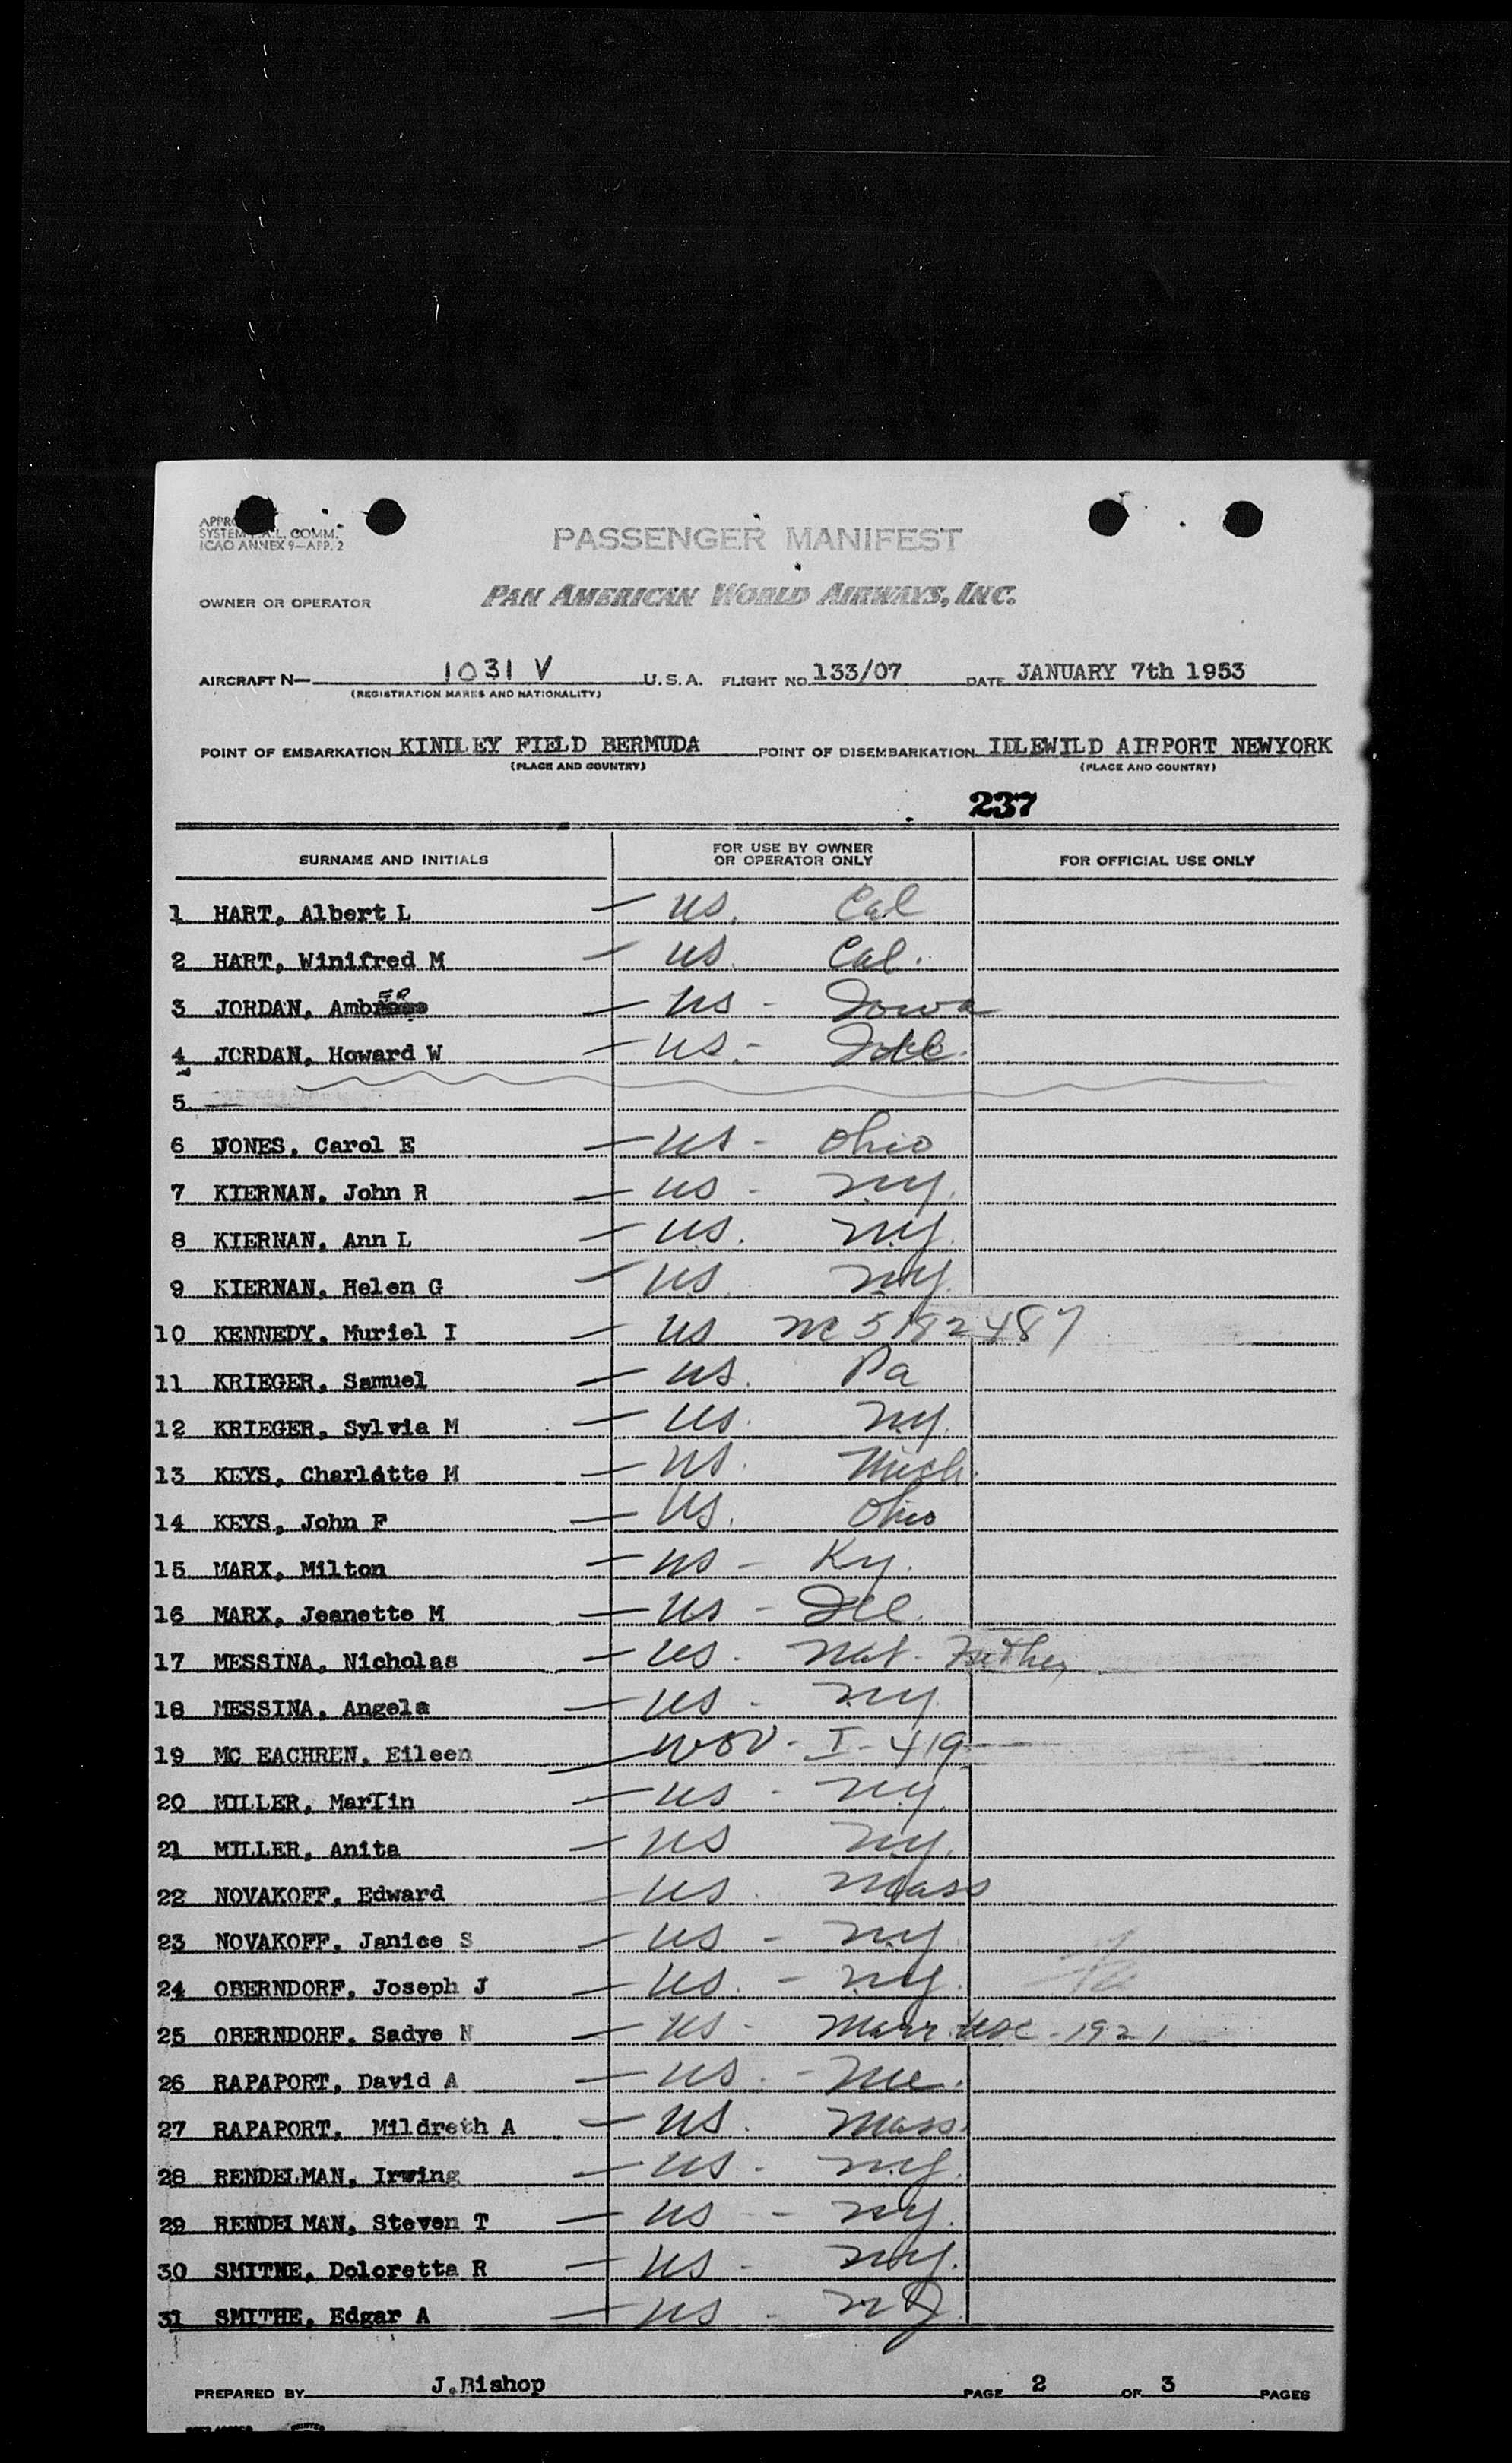 SYSTEM A.L. COMM.
ICAO ANNEX 9—APP. 2
PASSENGER MANIFEST
OWNER OR OPERATOR PAN AMERICAN WORLD AIRWAYS, INC.
AIRCRAFT N— 1031 V U.S.A. FLIGHT NO. 133/07 DATE JANUARY 7th 1953
(REGISTRATION MARKS AND NATIONALITY)
POINT OF EMBARKATION KINDLEY FIELD BERMUDA POINT OF DISEMBARKATION IDLEWILD AIRPORT NEWYORK
(PLACE AND COUNTRY) (PLACE AND COUNTRY)
237
SURNAME AND INITIALS FOR USE BY OWNER OR OPERATOR ONLY FOR OFFICIAL USE ONLY
1 HART, Albert L — US. Cal
2 HART, Winifred M — US. Cal.
3 JORDAN, Amber — US - Iowa
4 JORDAN, Howard W — US. -
5.
6 JONES, Carol E — US - Ohio
7 KIERNAN, John R — US - NY.
8 KIERNAN, Ann L — U.S. N.Y.
9 KIERNAN, Helen G — US. N.Y.
10 KENNEDY, Muriel I — US NC 5182487
11 KRIEGER, Samuel — US. Pa
12 KRIEGER, Sylvia M — US. N.Y.
13 KEYS, Charlotte M — US. Mich.
14 KEYS, John F — US. Ohio
15 MARX, Milton — US - Ky.
16 MARX, Jeanette M — US - Ill.
17 MESSINA, Nicholas — US. Nat.
18 MESSINA, Angela — US - N.Y.
19 MC EACHREN, Eileen — WOV - I - 419
20 MILLER, Martin — US - N.Y.
21 MILLER, Anita — US N.Y.
22 NOVAKOFF, Edward — US. Mass
23 NOVAKOFF, Janice S — US - N.Y.
24 OBERNDORF, Joseph J — US. - N.Y.
25 OBERNDORF, Sadye N — US - Marr. USC - 1921
26 RAPAPORT, David A — US. - Me.
27 RAPAPORT, Mildreth A — US. Mass.
28 RENDELMAN, Irwing — US - N.Y.
29 RENDELMAN, Steven T — US - - N.Y.
30 SMITHE, Doloretta R — US - N.Y.
31 SMITHE, Edgar A — US - NJ.
PREPARED BY J.Bishop PAGE 2 OF 3 PAGES